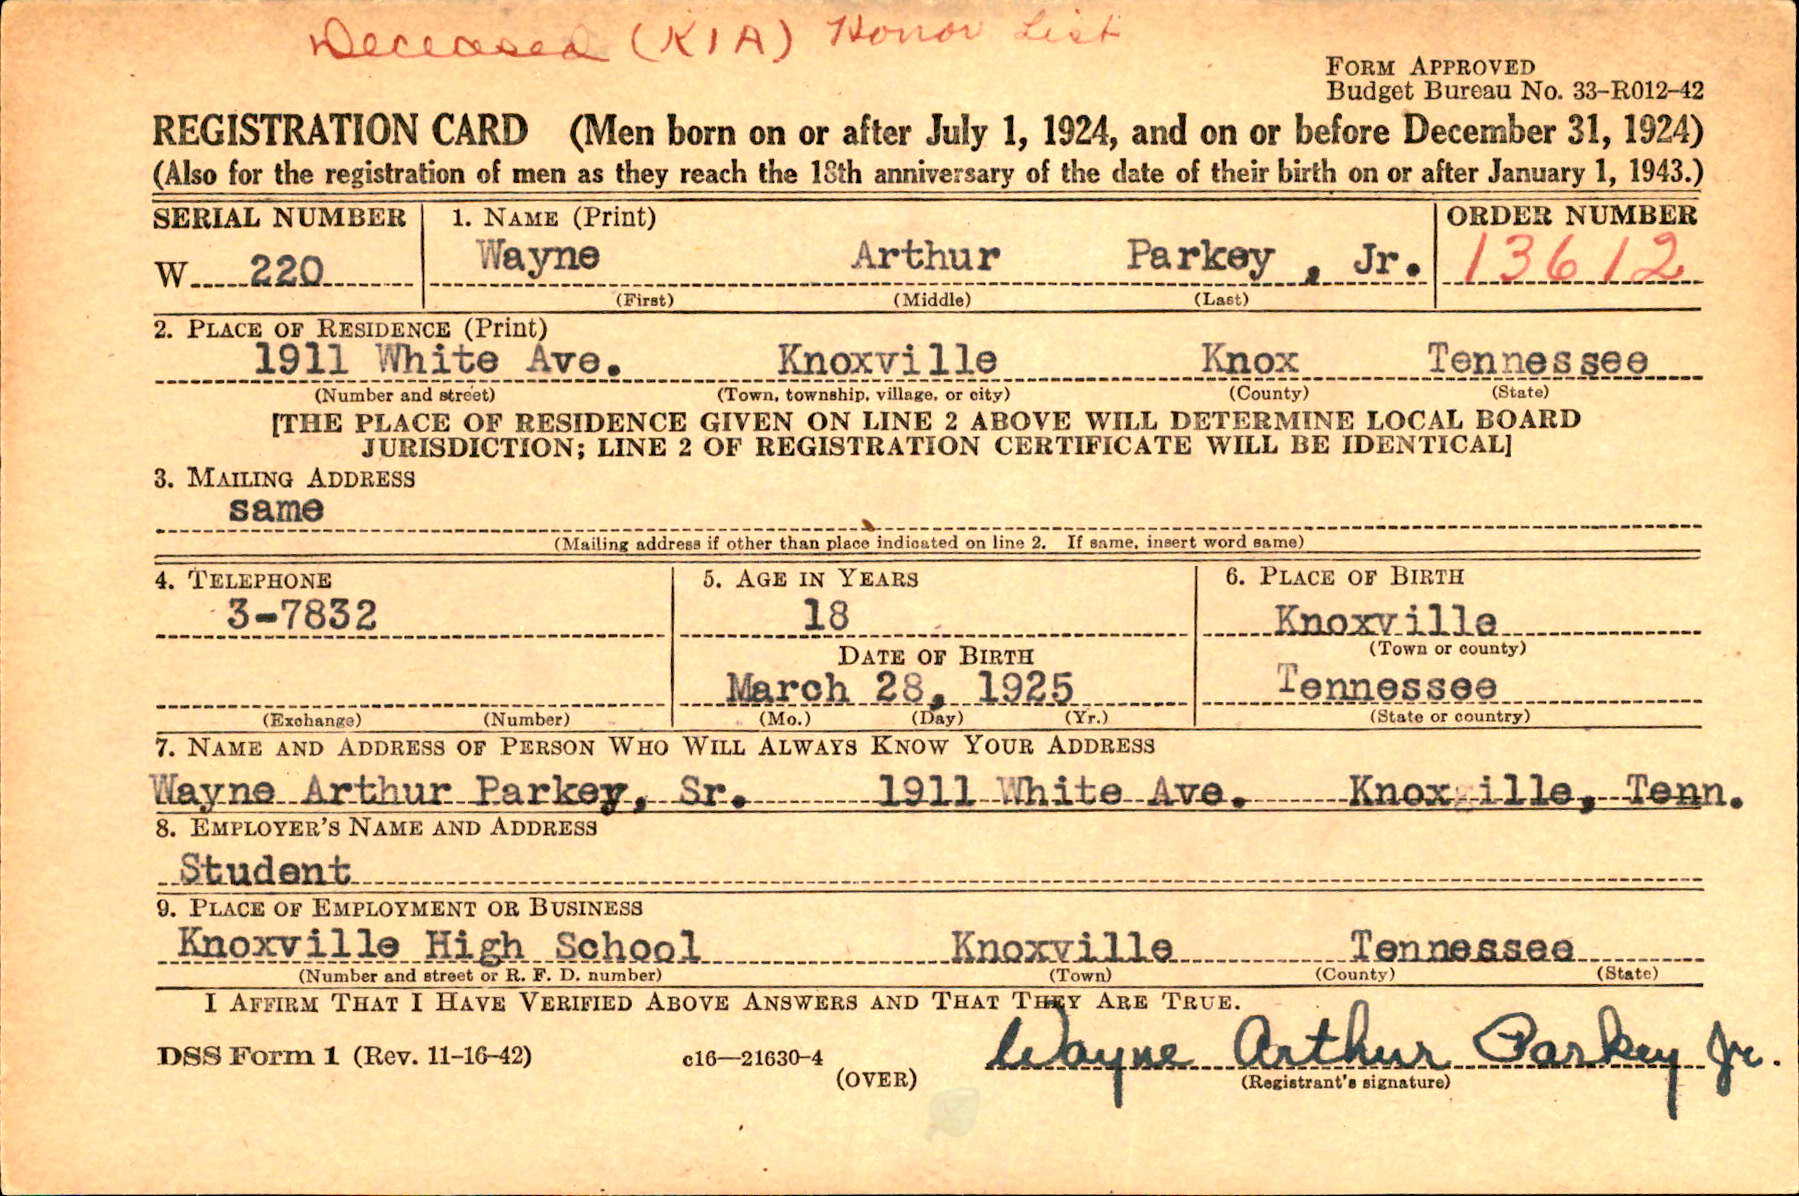 Deceased (KIA) Honor List
FORM APPROVED
Budget Bureau No. 33-R012-42
REGISTRATION CARD (Men born on or after July 1, 1924, and on or before December 31, 1924)
(Also for the registration of men as they reach the 18th anniversary of the date of their birth on or after January 1, 1943.)
SERIAL NUMBER 1. NAME (Print) ORDER NUMBER
W 220 Wayne Arthur Parkey , Jr. 13612
(First) (Middle) (Last)
2. PLACE OF RESIDENCE (Print)
1911 White Ave. Knoxville Knox Tennessee
(Number and street) (Town, township, village, or city) (County) (State)
[THE PLACE OF RESIDENCE GIVEN ON LINE 2 ABOVE WILL DETERMINE LOCAL BOARD
JURISDICTION; LINE 2 OF REGISTRATION CERTIFICATE WILL BE IDENTICAL]
3. MAILING ADDRESS
same
(Mailing address if other than place indicated on line 2. If same, insert word same)
4. TELEPHONE 5. AGE IN YEARS 6. PLACE OF BIRTH
3-7832 18 Knoxville
DATE OF BIRTH (Town or county)
March 28, 1925 Tennessee
(Exchange) (Number) (Mo.) (Day) (Yr.) (State or country)
7. NAME AND ADDRESS OF PERSON WHO WILL ALWAYS KNOW YOUR ADDRESS
Wayne Arthur Parkey, Sr. 1911 White Ave. Knoxville, Tenn.
8. EMPLOYER'S NAME AND ADDRESS
Student
9. PLACE OF EMPLOYMENT OR BUSINESS
Knoxville High School Knoxville Tennessee
(Number and street or R. F. D. number) (Town) (County) (State)
I AFFIRM THAT I HAVE VERIFIED ABOVE ANSWERS AND THAT THEY ARE TRUE.
DSS Form 1 (Rev. 11-16-42) c16—21630-4 Wayne Arthur Parkey Jr.
(OVER) (Registrant's signature)